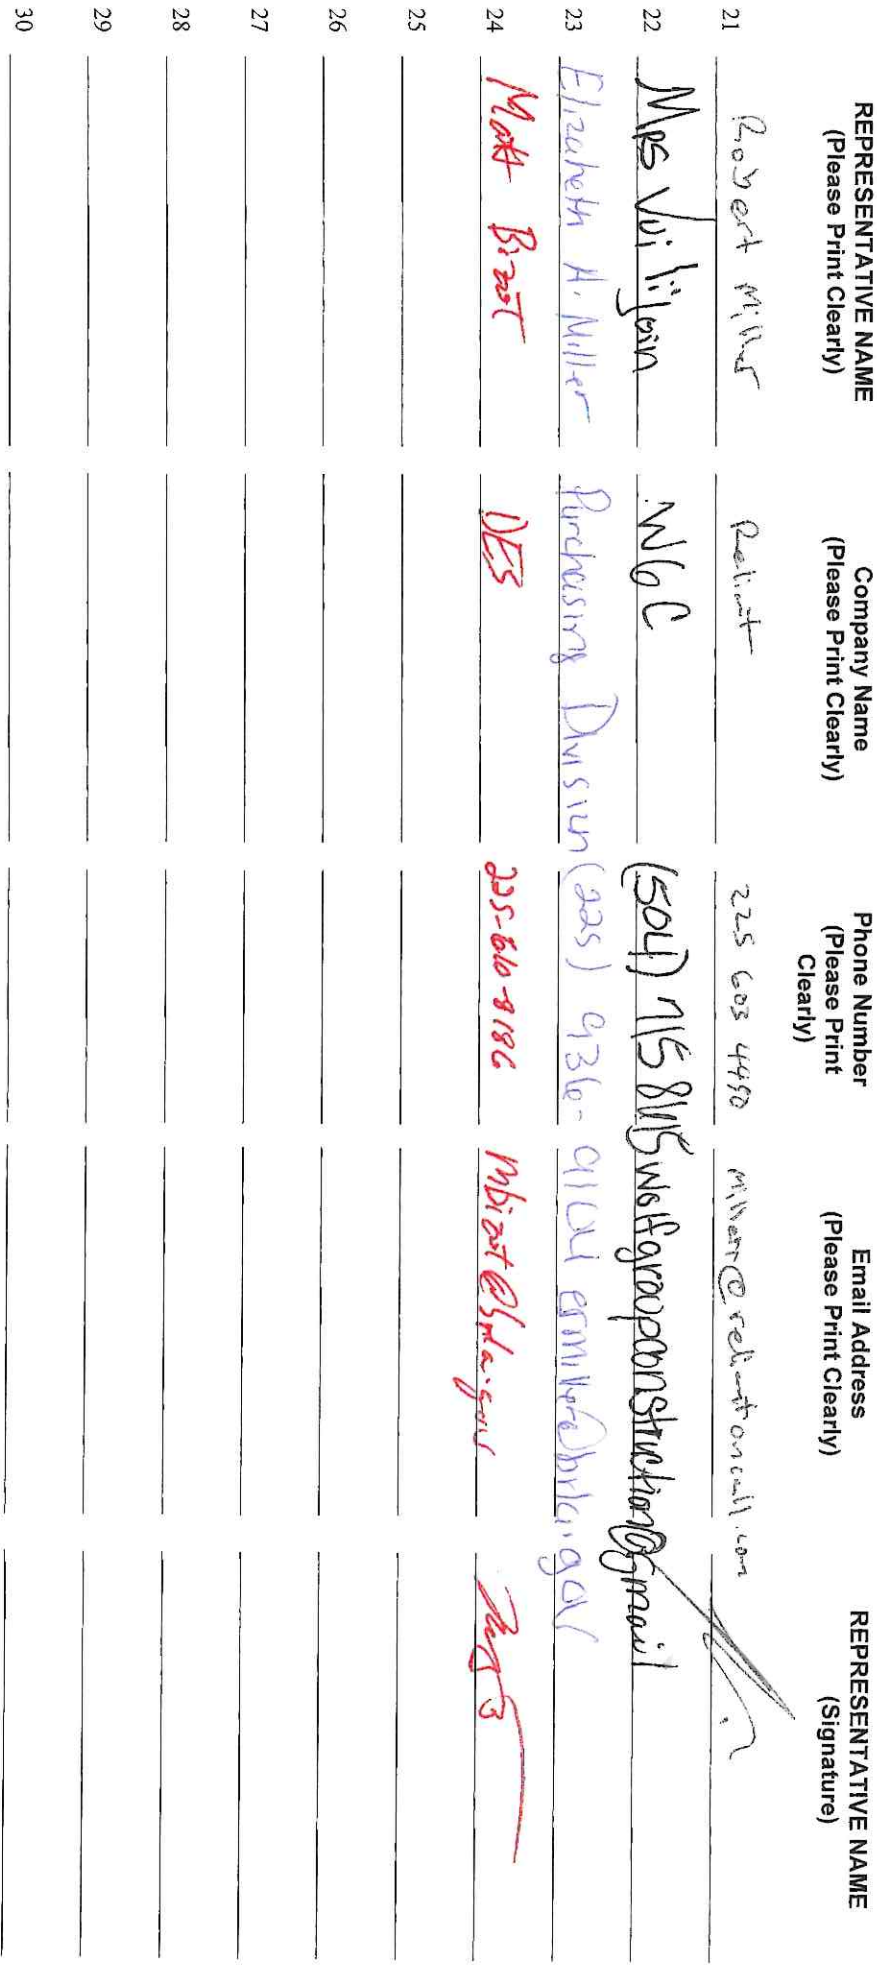 REPRESENTATIVE NAME (Please Print Clearly) Company Name (Please Print Clearly) Phone Number (Please Print Clearly) Email Address (Please Print Clearly) REPRESENTATIVE NAME (Signature)
21 Robert Miller Reliant 225 603 4490 millerr@reliantoncall.com
22 Mps WGC (504) 715 wolfgroupconstruction@gmail
23 Elizabeth A. Miller Purchasing Division (225)
24 Matt Bizot DES 225-610-8186 mbizot@brla.gov
25
26
27
28
29
30